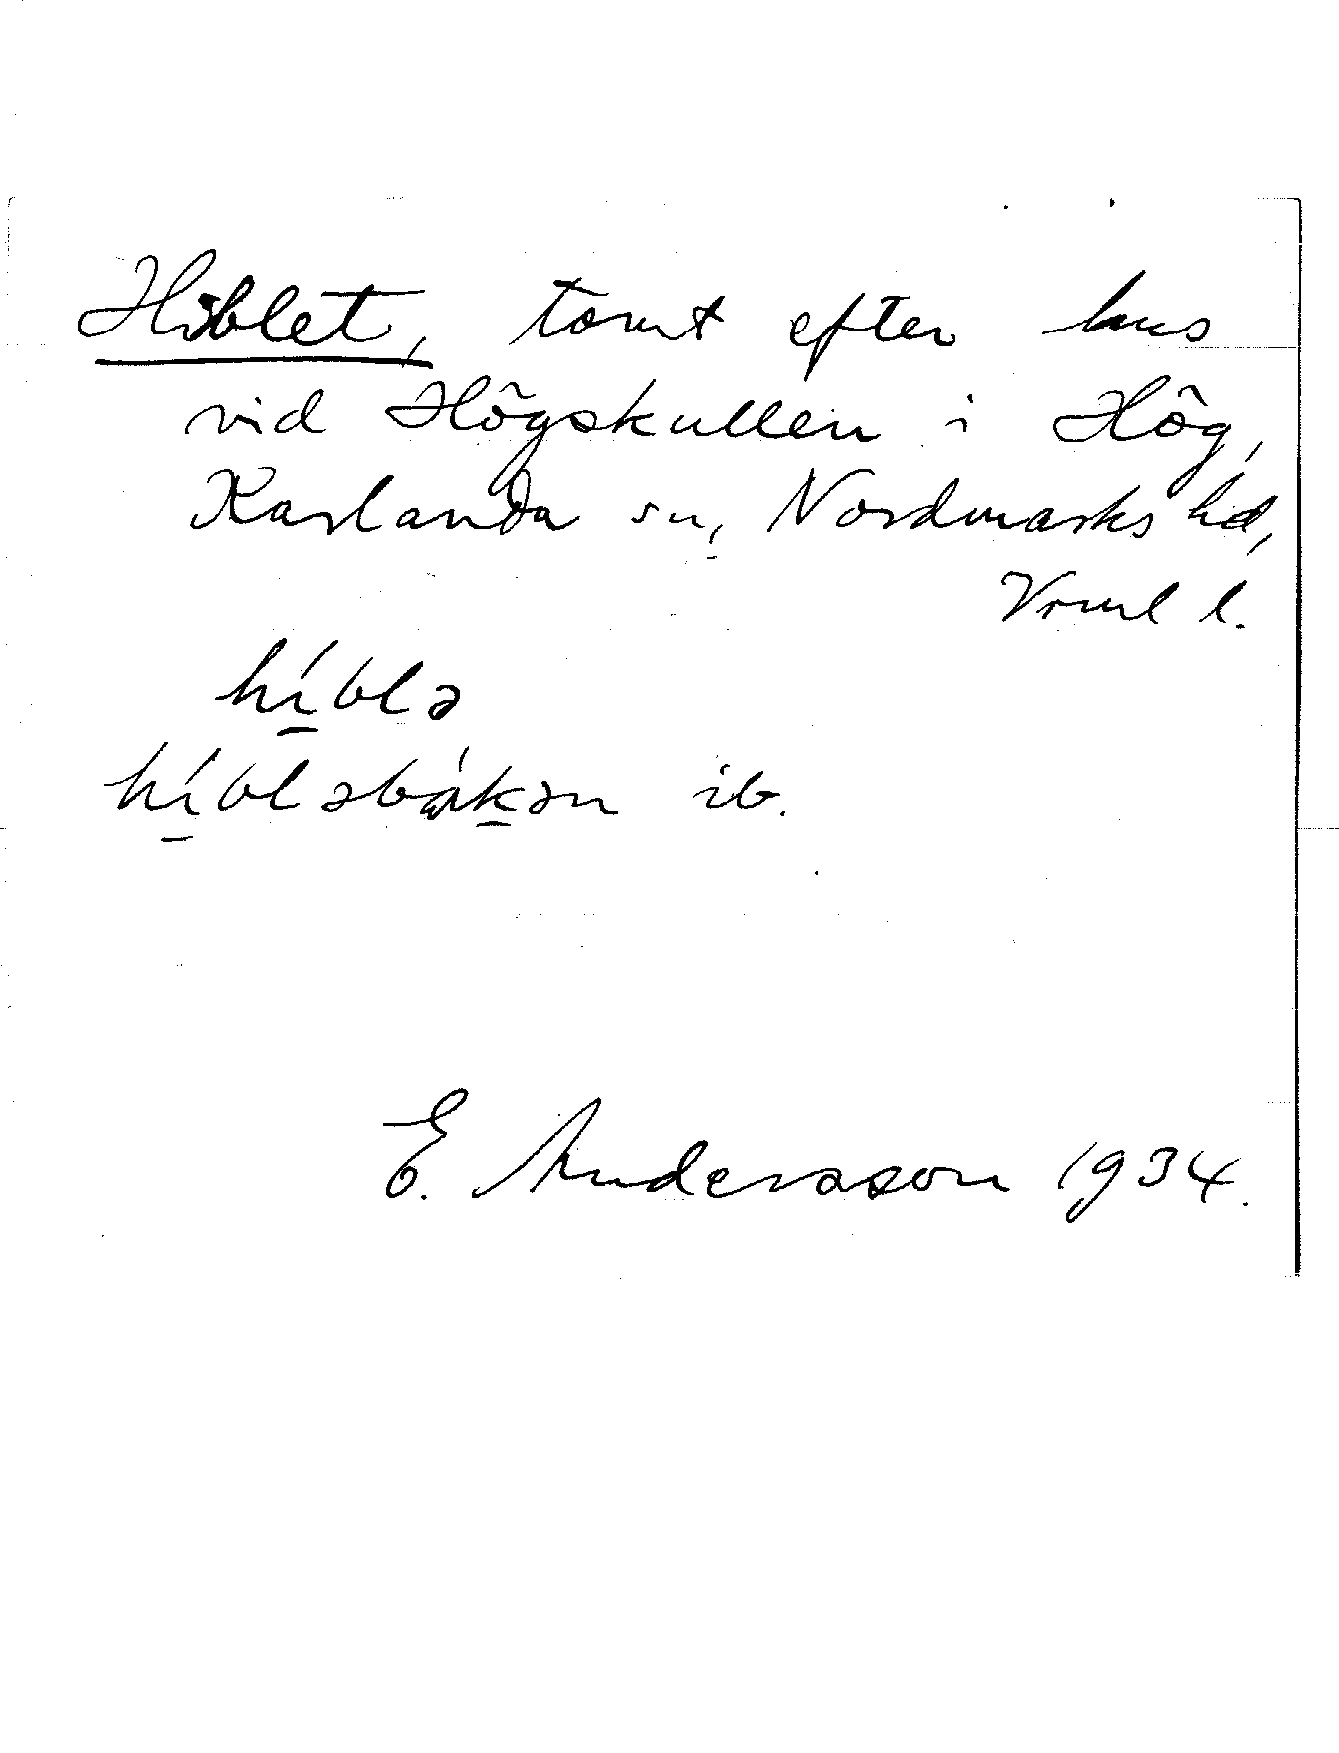 Hiblet, tomt efter hus
vid Högskullen i Hög,
Karlanda sn, Nordmarks hd,
Vrml l.
híblə
híbləbákən ib.
E. Andersson 1934.